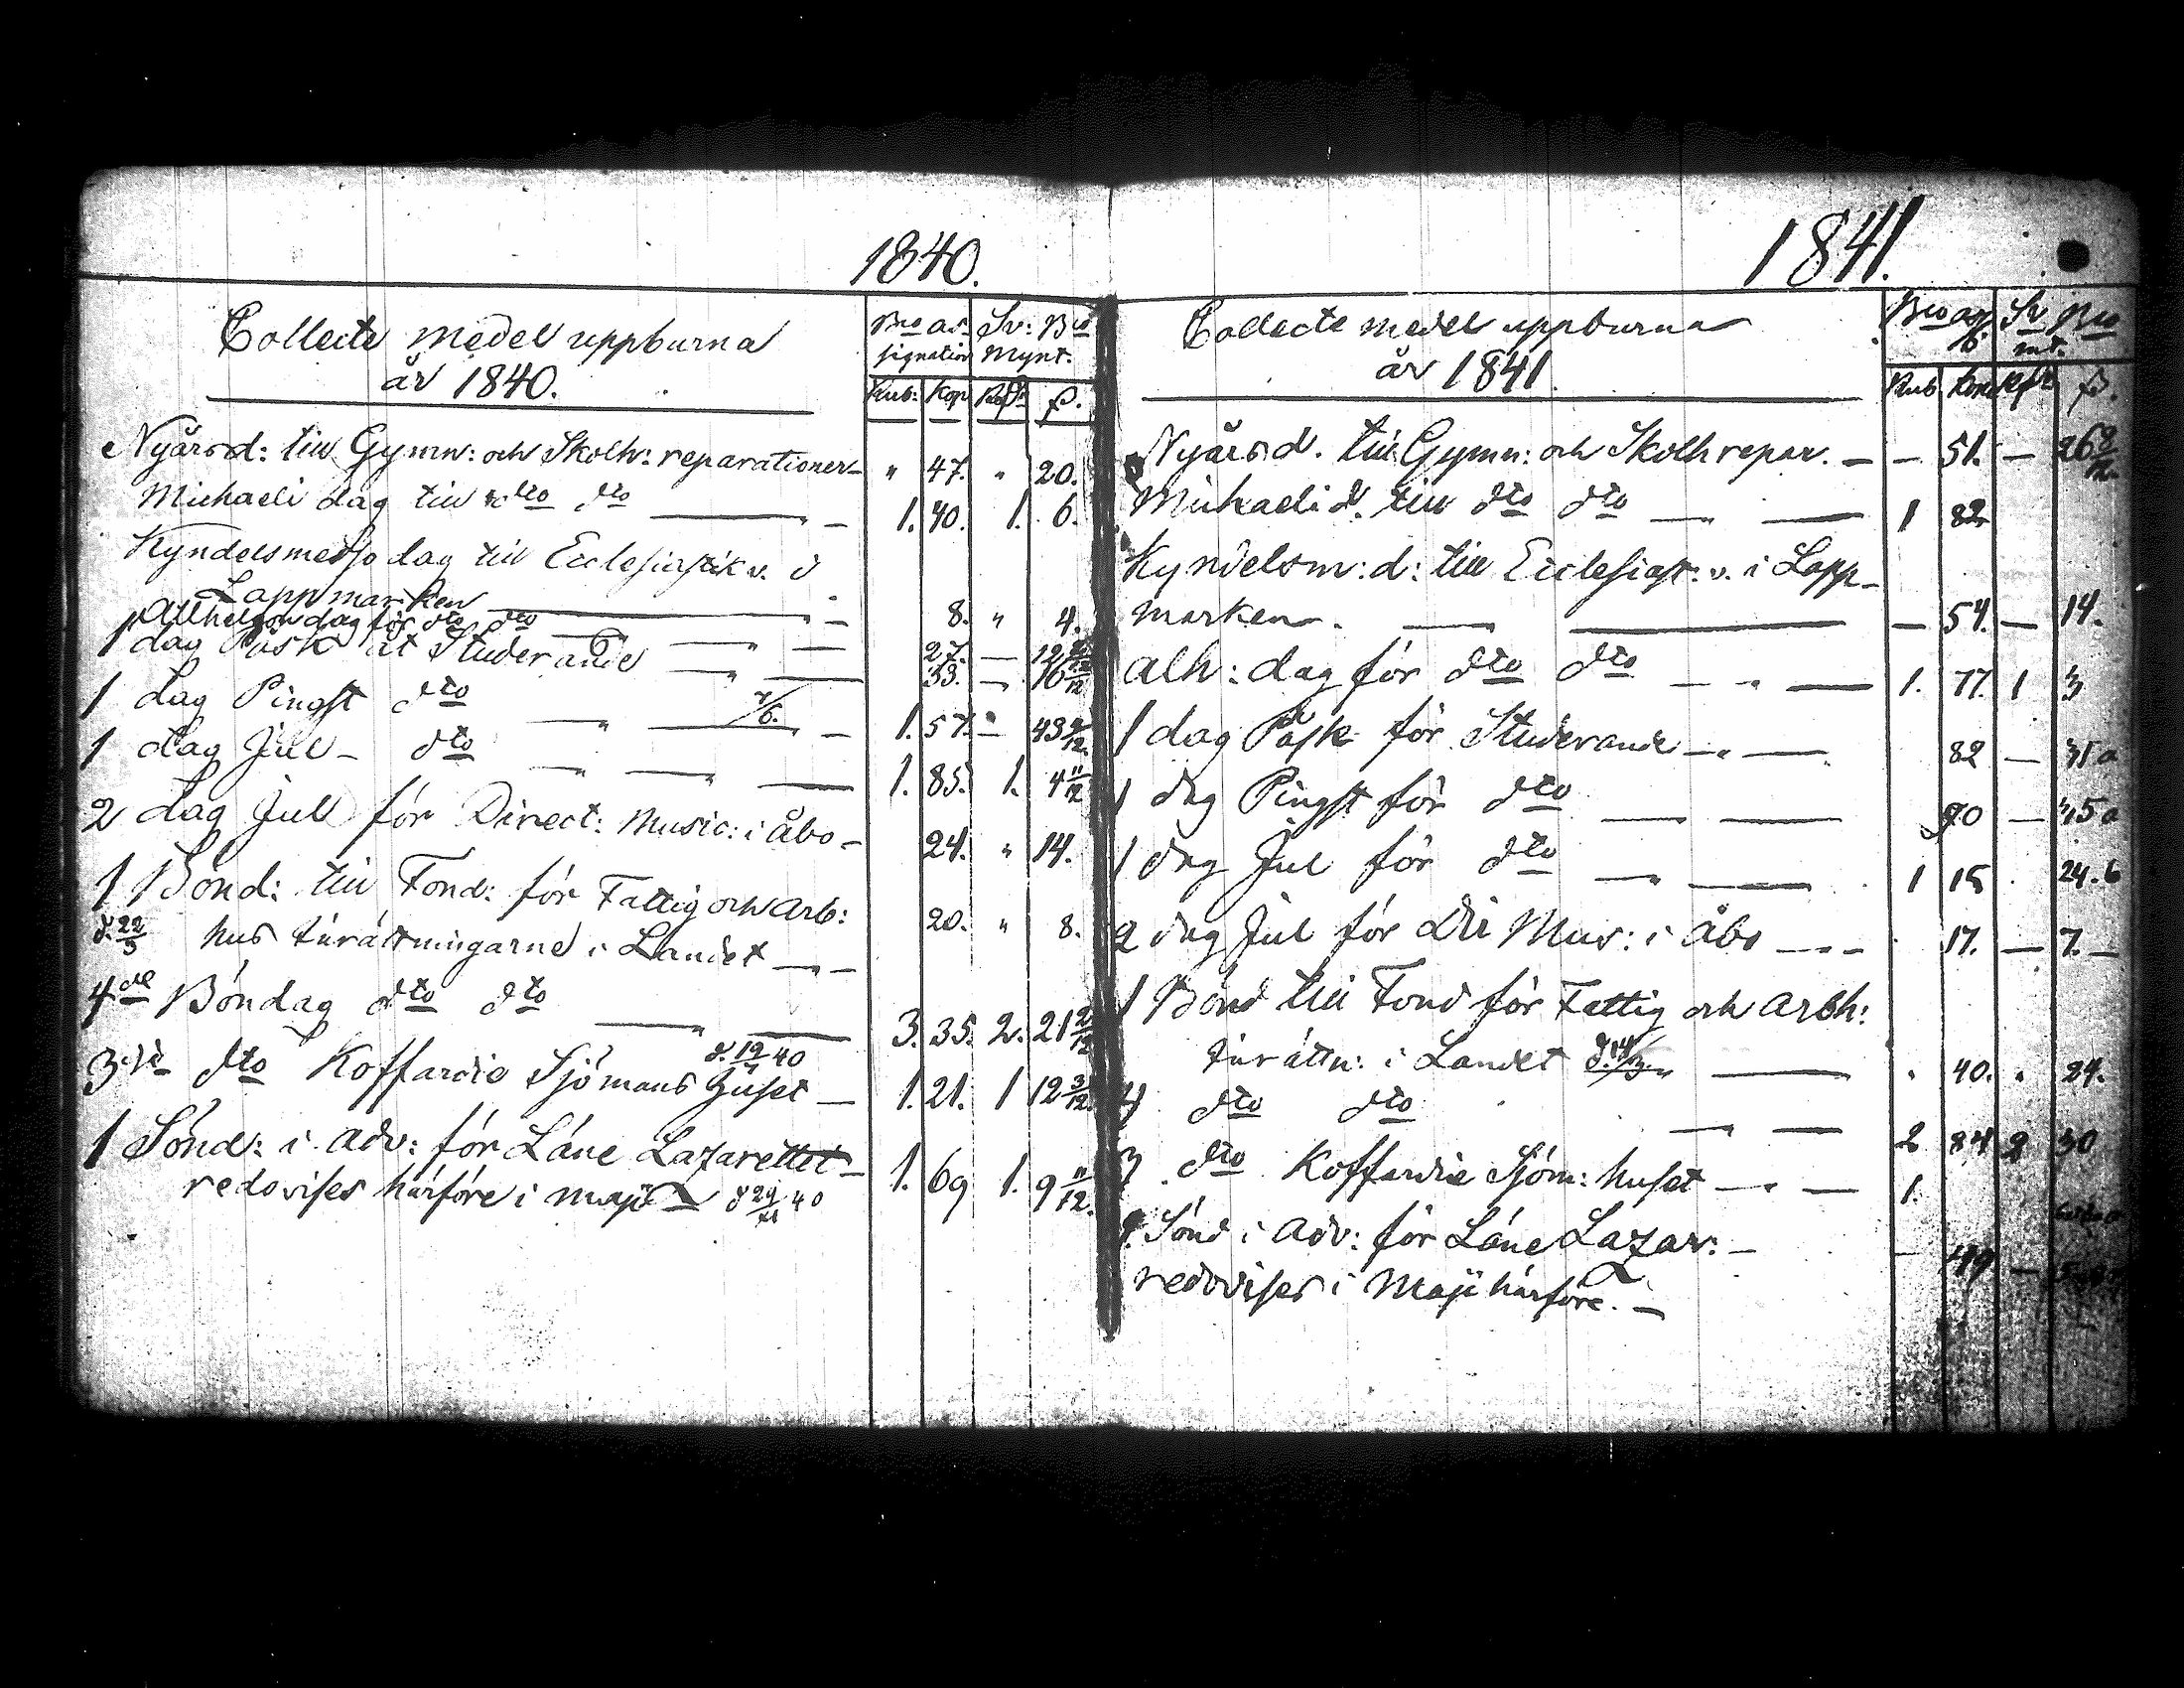 1840.
Collecte medel uppburna
år 1840.
Bco as- Sv: Bco
signation Mynt.
Rub: Kop Rdr ß.
Nyårsd: till Gymn: och Skolh: reparationer — " 47. " 20.
Michaeli dag till dto dto — 1. 40. 1. 6.
Kyndelsmesso dag till Ecclesiastik v. i
Lappmarken — 8. " 4.
Allhelgon dag för dto dto — 27. — 12
1 dag Påsk åt Studerande — 33. — 16
1 dag Pingst dto — 1. 57. " 43 9/12.
1 dag Jul — dto — 1. 85. 1. 4 11/12
2 dag Jull för Direct: Music: i Åbo — 24. " 14.
1 Bönd: till Fond: för Fattig och Arb:
d. 22/3 hus inrättningarne i Landet — 20. " 8.
4de Böndag dto dto — 3. 35. 2. 21 2/12
d. 19/ 40
3die dto Koffardie Sjömans Huset — 1. 21. 1 12 3/12.
1 Sönd: i Adv: för Läne Lazarettet — 1. 69 1. 9 11/12.
redovises härföre i Maji d 29/ 40
1841.
Collecte medel uppburna
år 1841.
Bco Sv Bco
mt.
Rub ß.
Nyårsd. till Gymn: och Skolh repar. — — 51. — 26
Michaeli d. till dto dto — 1 82
Kyndelsm: d: till Ecclesiast: v. i Lapp-
marken — — 54. — 14.
Alh: dag för dto dto — 1. 77. 1 3
1 dag Påsk för Studerande — 82 —
1 dag Pingst för dto — 90 —
1 dag Jul för dto — 1 15 . 24. 6
2 dag Jul för Dir Mus: i Åbo — 17. — 7. —
1 Bönd till Fond för Fattig och Arbh:
inrättn: i Landet — " 40. " 24.
4 dto dto — 2 84 2 30
3 dto Koffardie Sjöm: huset — 1.
1. Sönd i Adv: för Läne Lazar: — — 49 —
redovises i Maji härföre. —